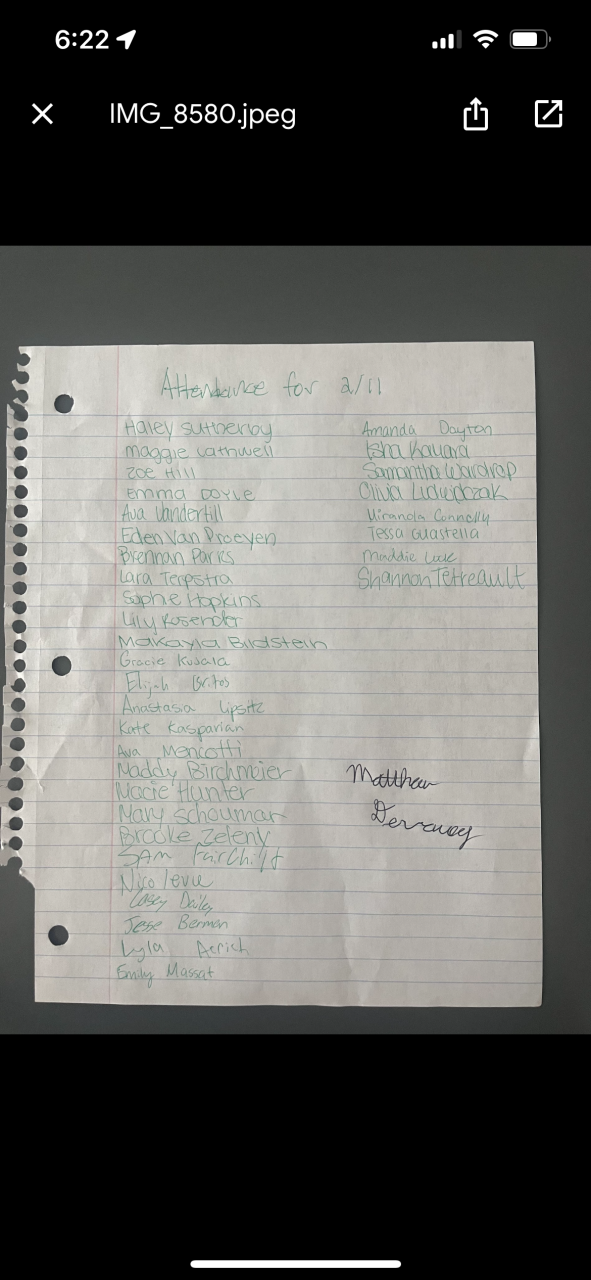 6:22
IMG_8580.jpeg
Attendance for 2/11
Haley Sutherby
Maggie Cathwell
Zoe Hill
Emma Doyle
Ava Vanderhill
Eden Van Proeyen
Brennan Parks
Lara Terpstra
Sophie Hopkins
Lily Rosender
Makayla Bildstein
Gracie Kusala
Elijah
Anastasia Lipsitz
Kate Kasparian
Ava Mencotti
Maddy Birchmeier
Macie Hunter
Mary Schoumar
Brooke Zeleny
Sam
Nico
Casey Dailey
Jesse Berman
Lyla
Emily Massat
Amanda Dayton
Isha
Samantha Wardrop
Olivia
Miranda Connolly
Tessa Guastella
Maddie
Shannon Tetreault
Matthew